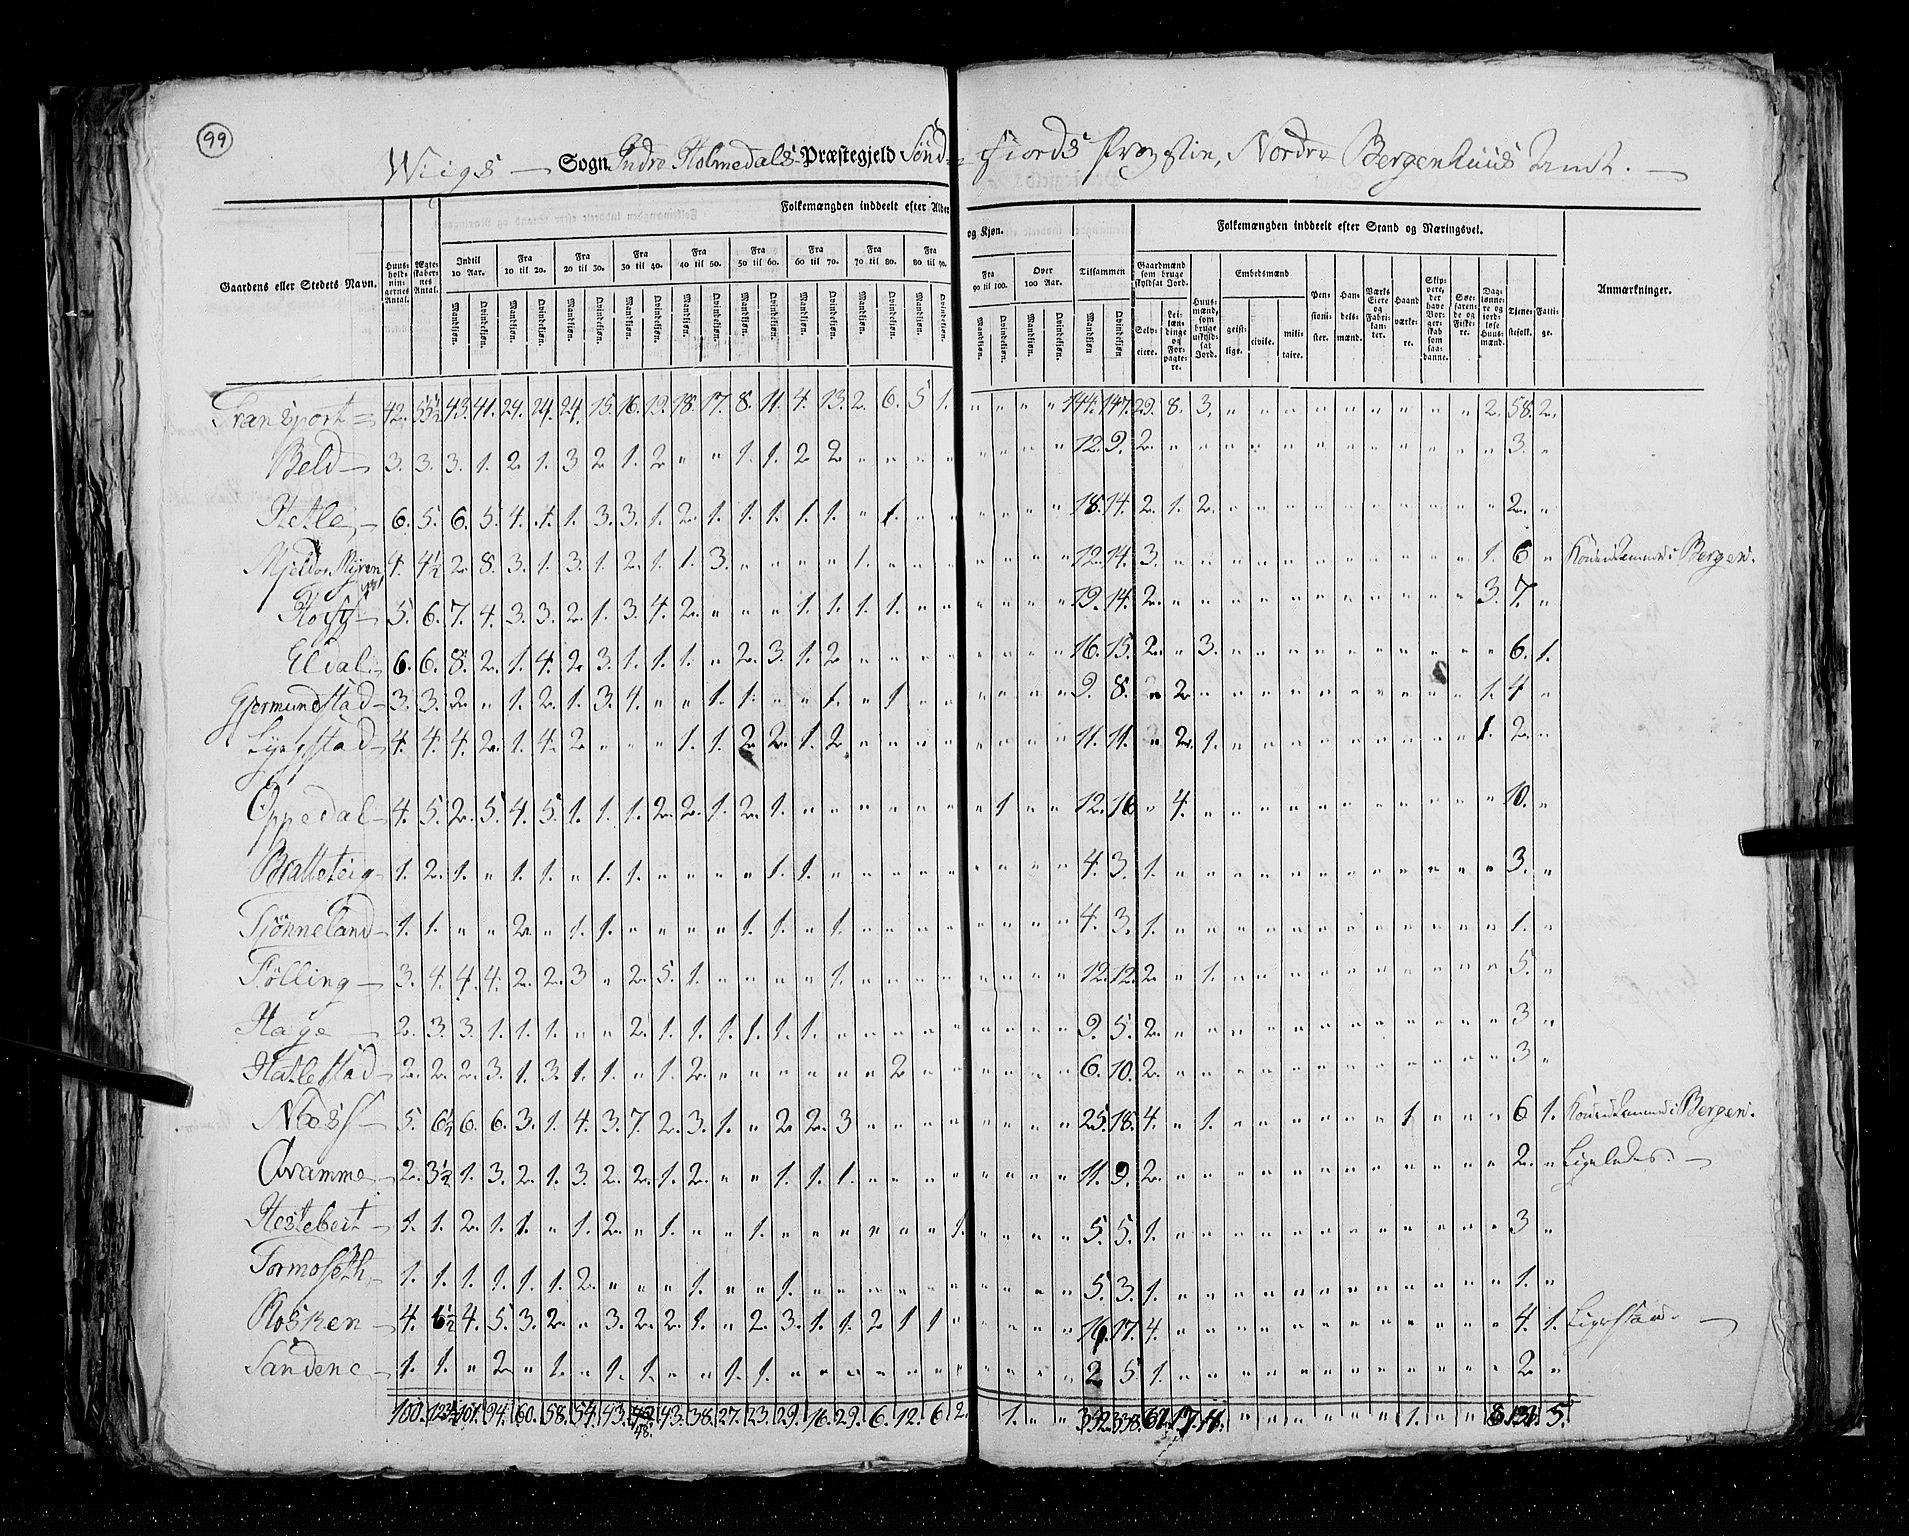 99
Wiigs — Sogn Indre Holmedals Præstegjeld Sönd- fiords Provstie, Nordre Bergenhuus Amt. —
Folkemængden inddeelt efter Alder og Kjøn.
Folkemængden inddeelt efter Stand og Næringsvei.
Gaardens eller Stedets Navn.
Huus-holdningernes Antal.
Ægteskabernes Antal.
Indtil 10 Aar. Fra 10 til 20. Fra 20 til 30. Fra 30 til 40. Fra 40 til 50. Fra 50 til 60. Fra 60 til 70. Fra 70 til 80. Fra 80 til 90. Fra 90 til 100. Over 100 Aar. Tilsammen
Mandkjøn. Qvindekjøn.
Gaardmænd som bruge skyldsat Jord. Selveiere. Leilændinge og Forpagtere.
Huusmænd, som bruge uskyldsat Jord.
Embedsmænd geistlige. civile. militaire.
Pensionister.
Handelsmænd.
Værks Eiere og Fabrikanter.
Haandværkere.
Skippere, der have Borgerskab som saadanne.
Søefarende og Fiskere.
Daglønnere og jordløse Huusmænd.
Tjenestefolk.
Fattige.
Anmærkninger.
Transport = 42. 55½ 43. 41. 24. 24. 24. 15. 16. 19. 18. 17. 8. 11. 4. 13. 2. 6. 5. 1. " " " " 144. 147. 29. 8. 3. " " " " " " " " " 2. 58. 2.
Beld — 3. 3. 3. 1. 2. 1. 3 2. 1. 2. " " 1. 1. 2 2 " " " " " " " " 12. 9. 2. " " " " " " " " " " " " 3. "
Hetle — 6. 5. 6. 5. 4. 4. 1. 3. 3. 1. 2. 1. 1. 1. 1. 1. " 1. " " " " " " 18. 14. 2. 1. 2. " " " " " " " " " " 2. "
4. 4½ 2. 8. 3. 1. 3. 1. 2. 1. 1. 3. " " " " 1. " " " " " " " 12. 14. 3. " " " " " " " " " " " 1. 6 " Bergen.
5. 6. 7. 4. 3. 3. 2. 1. 3. 4. 2. " " " 1. 1. 1. 1. " " " " " " 19. 14. 2. " " " " " " " " " " " 3. 7. "
Eldal — 6. 6. 8. 2. 1. 4. 2. 3. 1. 1. 1. " 2. 3. 1. 2 " " " " " " " " 16. 15. 2. " 3. " " " " " " " " " " 6. 1.
Gjermundstad — 3. 3. 2. " 1. 2. 1. 3. 4. " " 1. 1. " " 1. " 1 " " " " " " 9. 8. " 2 " " " " " " " " " " 1. 4 "
4. 4. 4. 2. 1. 4. 2 " " " 1. 1. 2. 2. 1. 2. " " " " " " " " 11. 11. " 2. 1. " " " " " " " " " 1. 2. "
Oppedal — 4. 5. 2. 5. 4. 5. 1. 1. 1. 2. 2. 1. 2. 1. " " " " " " " 1 " " 12. 16 " 4. " " " " " " " " " " " 10. "
Bratteteig — 1. 2. 1. " 1. 1. " 1. 1. " " " " 1. 1. " " " " " " " " " 4. 3. 1. " " " " " " " " " " " " 3. "
Tiönneland — 1. 1. " " 2. " 1. 1. " " " " 1. 1. " 1. " " " " " " " " 4. 3. 1. " " " " " " " " " " " " 1. "
Fölling — 3. 4. 4. 4. 2. 2. 3 " 2. 5. 1. " " " " 1. " " " " " " " " 12. 12. 2. " 1. " " " " " " " " " " 5. "
Hage — 2. 3. 3. 1. 1. 1. " " 2. 1. 1. 1. 1. 1. 1. " " " " " " " " " 9. 5. 2. " " " " " " " " " " " " 3 "
Hatlestad — 2. 2. 2. 3. 1. 3. 1. 1. " 1. 2. " " " " " " 2 " " " " " " 6. 10. 2. " " " " " " " " " " " " 3 "
Næss — 5. 6½ 6. 6. 3. 1. 4. 3. 7. 2. 3. 1. " 2 2. 3 " " " " " " " " 25. 18. 4. " 1. " " " " " " 1 " " " 6 1. Bergen.
Qvamme — 2. 3½ 1. 3. 2. 1. 3. 2. 2. 1. 2. " " 1. 1. 1. " " " " " " " " 11. 9. 2. " " " " " " " " " " " " 2. " Ligeledes. —
Hestebeit — 1. 1. 2. 1. 1. " 1. 2. " 1. " " 1. " " " " " " 1. " " " " 5. 5. 1. " " " " " " " " " " " " 3 "
Tormoseth — 1. 1. 1. 1. 1. 1. 2. " " " 1. " " 1. " " " " " " " " " " 5. 3. 1. " " " " " " " " " " " " 1. "
4. 6½ 4. 5. 3. 2. " 3. 2. 2. 1. " 2. 3. 1. 1. 2 1 1 " " " " " 16. 17. 4. " " " " " " " " " " " " 4. 1.
Sandene — 1. 1. " 2. " 1. " 1. 1. " " 1. 1. " " " " " " " " " " " 2 5. 1. " " " " " " " " " " " " 2 "
100. 123½ 101. 94. 60. 58. 54. 43. 43. 38. 27. 23. 29. 16. 29. 6. 12. 6 2. 1. " " 352. 338. 61. 17. 11. " " " " " " 1. " " 8. 131. 5.
48.